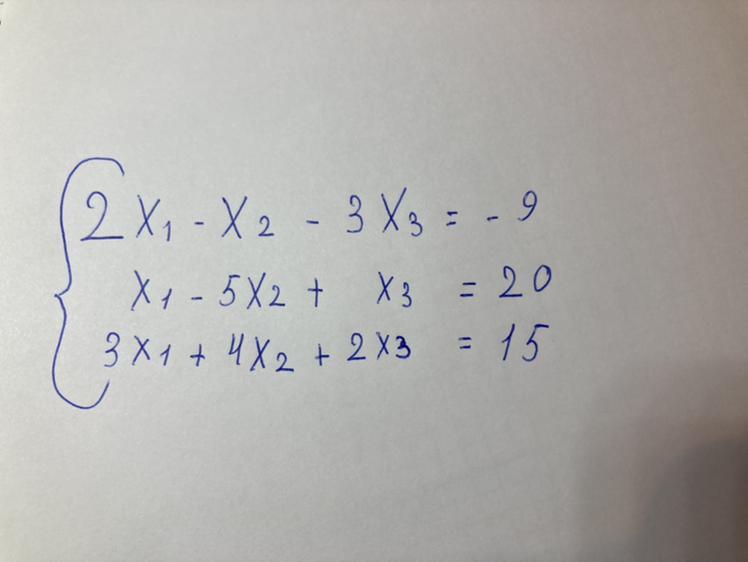 2x₁ - x₂ - 3x₃ = -9
x₁ - 5x₂ + x₃ = 20
3x₁ + 4x₂ + 2x₃ = 15